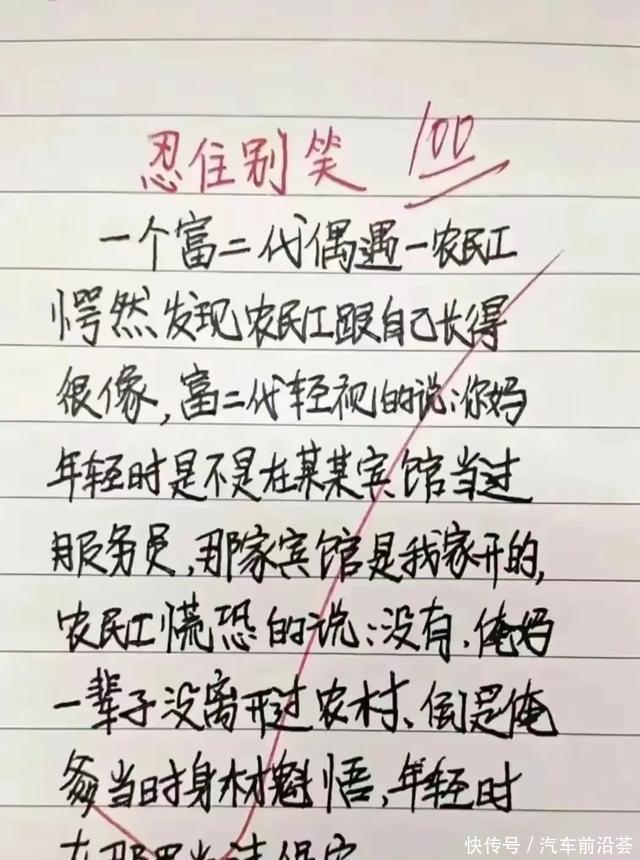 忍住别笑 100
一个富二代偶遇一农民工
愕然发现农民工跟自己长得
很像,富二代轻视的说:你妈
年轻时是不是在某某宾馆当过
服务员,那家宾馆是我家开的,
农民工慌恐的说:没有,俺妈
一辈子没离开过农村、倒是俺
爹当时身材魁悟,年轻时
快传号/汽车前沿荟